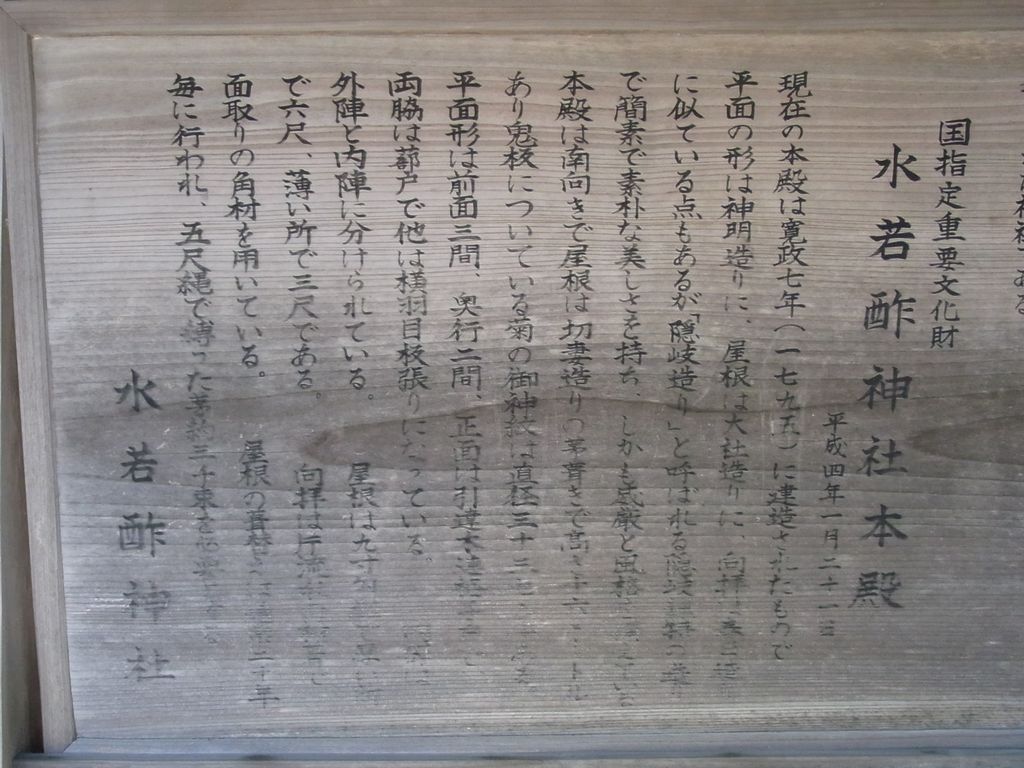 国指定重要文化財
水若酢神社本殿
平成四年一月二十一日
現在の本殿は寛政七年(一七九五)に建造されたもので
平面の形は神明造りに、屋根は大社造りに、向拝は春日造
に似ている点もあるが「隠岐造り」と呼ばれる隠岐
で簡素で素朴な美しさを持ち、しかも威厳と風格
本殿は南向きで屋根は切妻造りの茅葺きで高さ十六メートル
あり鬼板についている菊の御神紋は直径三十三
平面形は前面三間、奥行二間、正面は引違木連格子
両脇は蔀戸で他は横羽目板張りになっている。
外陣と内陣に分けられている。 屋根は九寸
で六尺、薄い所で三尺である。 向拝は片流
面取りの角材を用いている。 屋根の葺替えは 二十年
毎に行われ、五尺縄で縛った茅約三千束を
水若酢神社